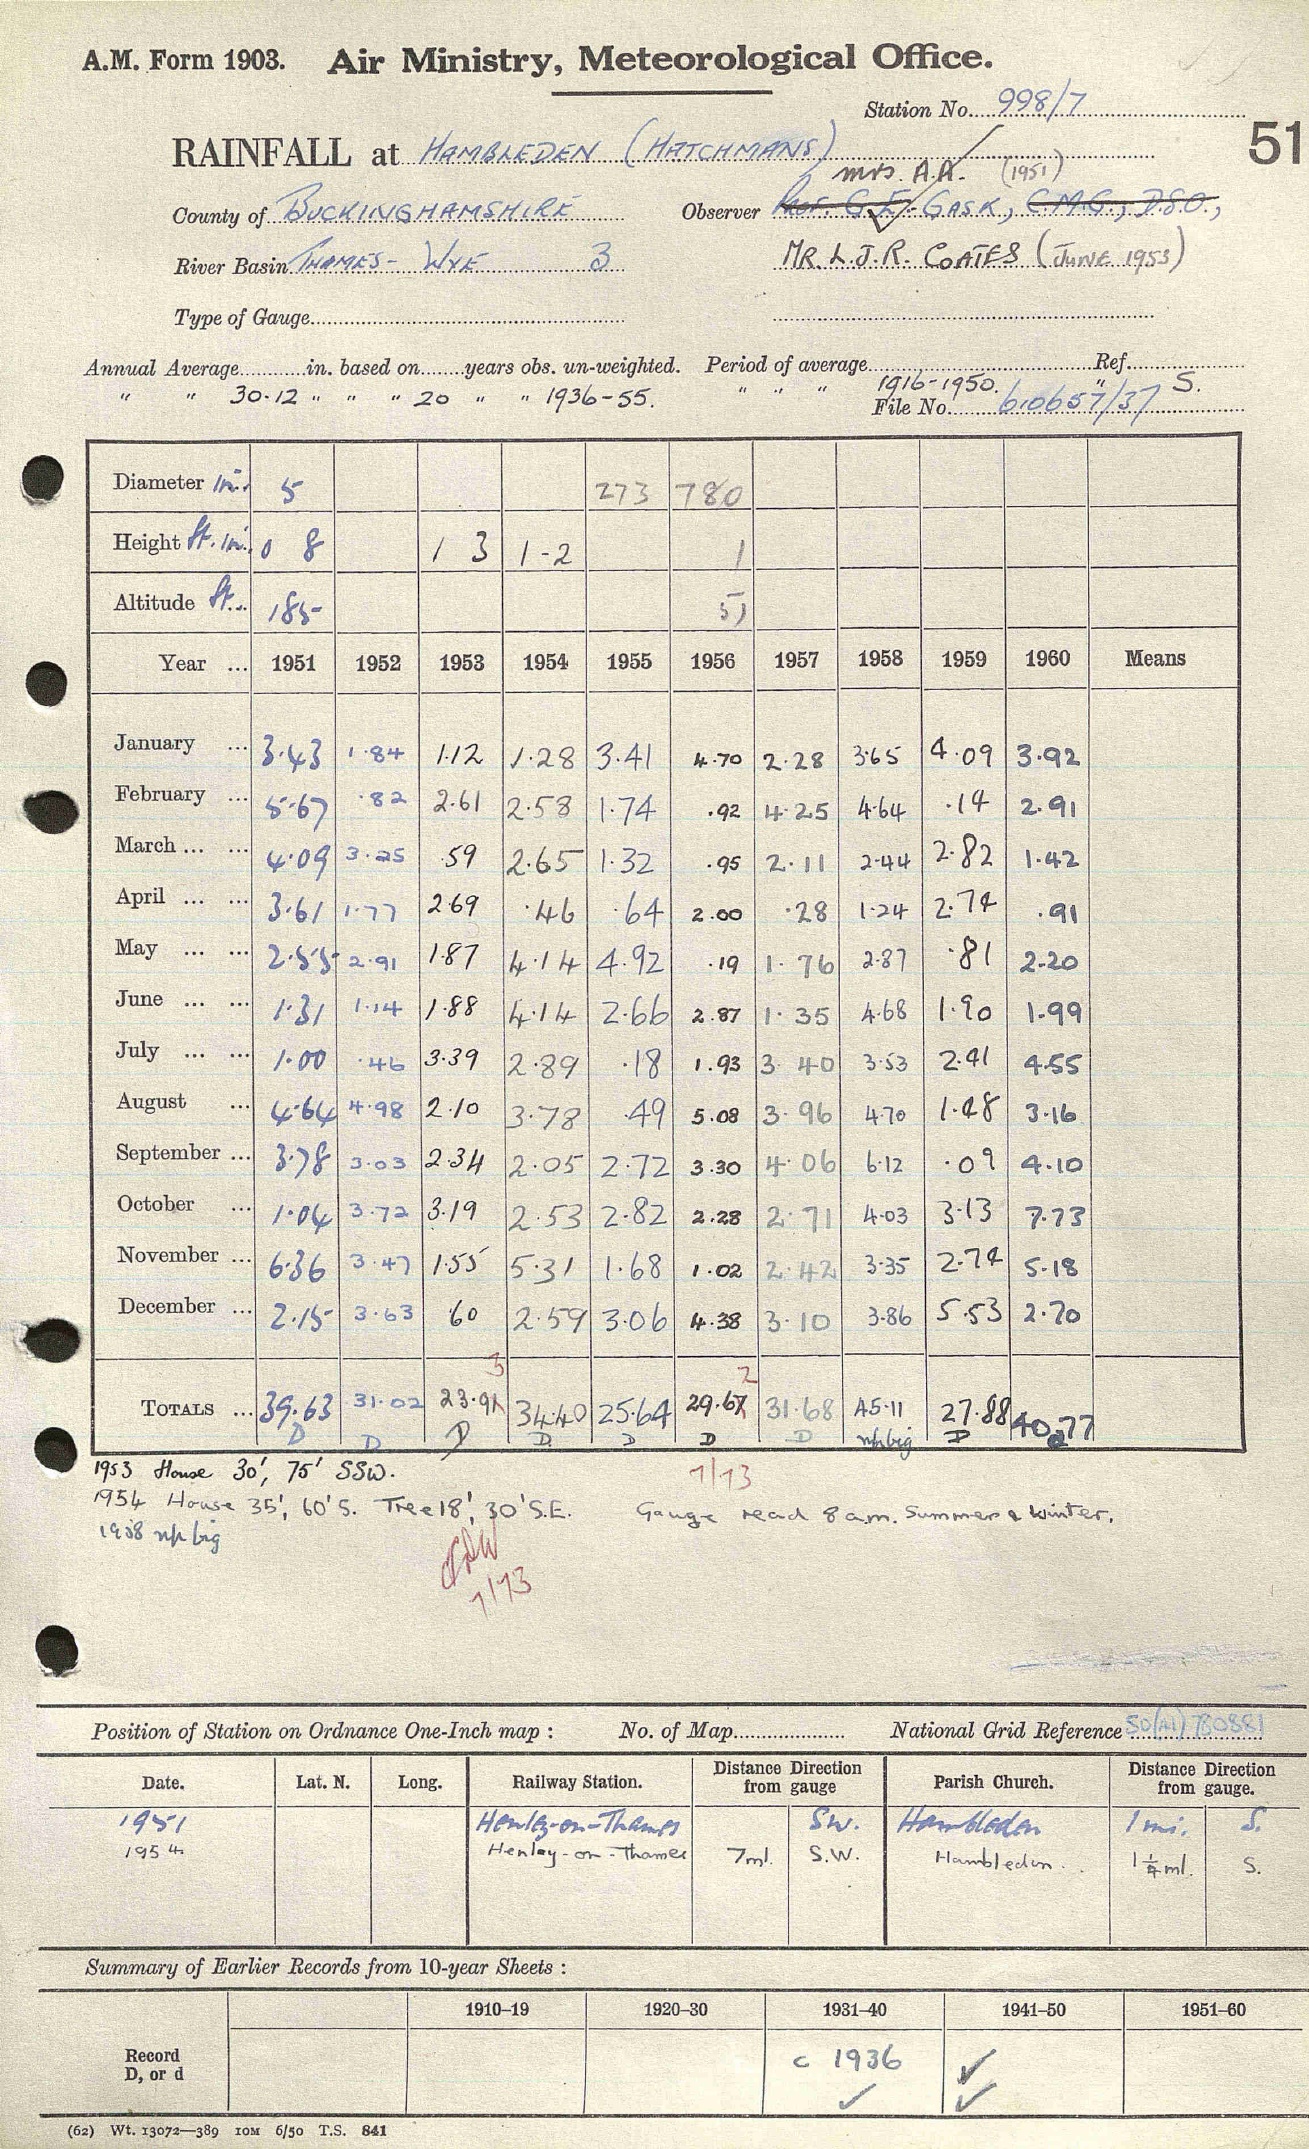 A.M. Form 1903. Air Ministry, Meteorological Office.
Station No. 998/7
51
RAINFALL at HAMBLEDEN (HATCHMANS)
Mrs. A.A. (1951)
County of BUCKINGHAMSHIRE Observer Prof. G.E. GASK, C.M.G., D.S.O.,
River Basin THAMES - WYE 3 MR. L.J.R. COATES (JUNE 1953)
Type of Gauge
Annual Average in. based on years obs. un-weighted. Period of average 1916-1950. Ref. S.
" " 30.12 " " " 20 " " 1936-55. " " " "
File No. 610657/37
Diameter in. 5 273 780
Height ft. in. 0 8 1 3 1-2 1
Altitude ft. 185 51
Year ... 1951 1952 1953 1954 1955 1956 1957 1958 1959 1960 Means
January ... 3.43 1.84 1.12 1.28 3.41 4.70 2.28 3.65 4.09 3.92
February ... 5.67 .82 2.61 2.58 1.74 .92 4.25 4.64 .14 2.91
March ... ... 4.09 3.25 .59 2.65 1.32 .95 2.11 2.44 2.82 1.42
April ... ... 3.61 1.77 2.69 .46 .64 2.00 .28 1.24 2.74 .91
May ... ... 2.55 2.91 1.87 4.14 4.92 .19 1.76 2.87 .81 2.20
June ... ... 1.31 1.14 1.88 4.14 2.66 2.87 1.35 4.68 1.90 1.99
July ... ... 1.00 .46 3.39 2.89 .18 1.93 3.40 3.53 2.41 4.55
August ... 4.64 4.98 2.10 3.78 .49 5.08 3.96 4.70 1.48 3.16
September ... 3.78 3.03 2.34 2.05 2.72 3.30 4.06 6.12 .09 4.10
October ... 1.04 3.72 3.19 2.53 2.82 2.28 2.71 4.03 3.13 7.73
November ... 6.36 3.47 1.55 5.31 1.68 1.02 2.42 3.35 2.74 5.18
December ... 2.15 3.63 .60 2.59 3.06 4.38 3.10 3.86 5.53 2.70
3 2
TOTALS ... 39.63 31.02 23.91 34.40 25.64 29.67 31.68 45.11 27.88 40.77
D D D D D D D D
1953 House 30', 75' SSW. 7/73
1954 House 35', 60' S. Tree 18', 30' S.E. Gauge read 8 a.m. Summer & Winter.
1958
7/73
Position of Station on Ordnance One-Inch map : No. of Map National Grid Reference 50(41) 780881
Date. Lat. N. Long. Railway Station. Distance Direction from gauge Parish Church. Distance Direction from gauge.
1951 Henley-on-Thames SW. Hambleden 1 mi. S.
1954 Henley-on-Thames 7ml. S.W. Hambleden. 1¼ml. S.
Summary of Earlier Records from 10-year Sheets :
1910–19 1920–30 1931–40 1941–50 1951–60
Record D, or d c 1936 ✓
✓ ✓
(62) Wt. 13072—389 10M 6/50 T.S. 841